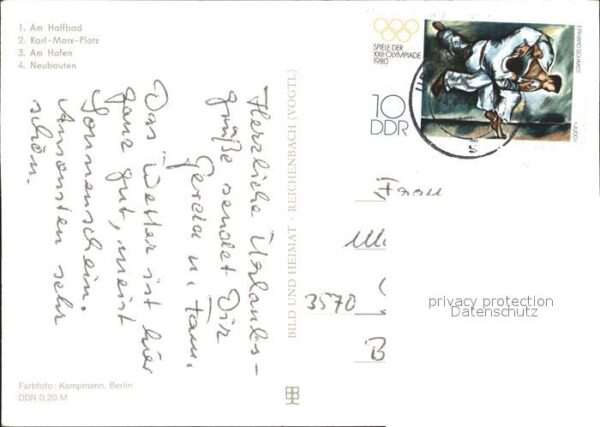 1. Am Haffbad
2. Karl-Marx-Platz
3. Am Hafen
4. Neubauten
Herzliche Urlaubs-
grüße sendet Dir
Gerda u. Fam.
Das Wetter ist hier
ganz gut, meist
Sonnenschein.
Ansonsten sehr
schön.
Farbfoto: Kampmann, Berlin
DDR 0,20 M
BILD UND HEIMAT · REICHENBACH (VOGTL.)
SPIELE DER
XXII. OLYMPIADE
1980
10
DDR
ERHARD SCHMIDT
Frau
3570
privacy protection
Datenschutz